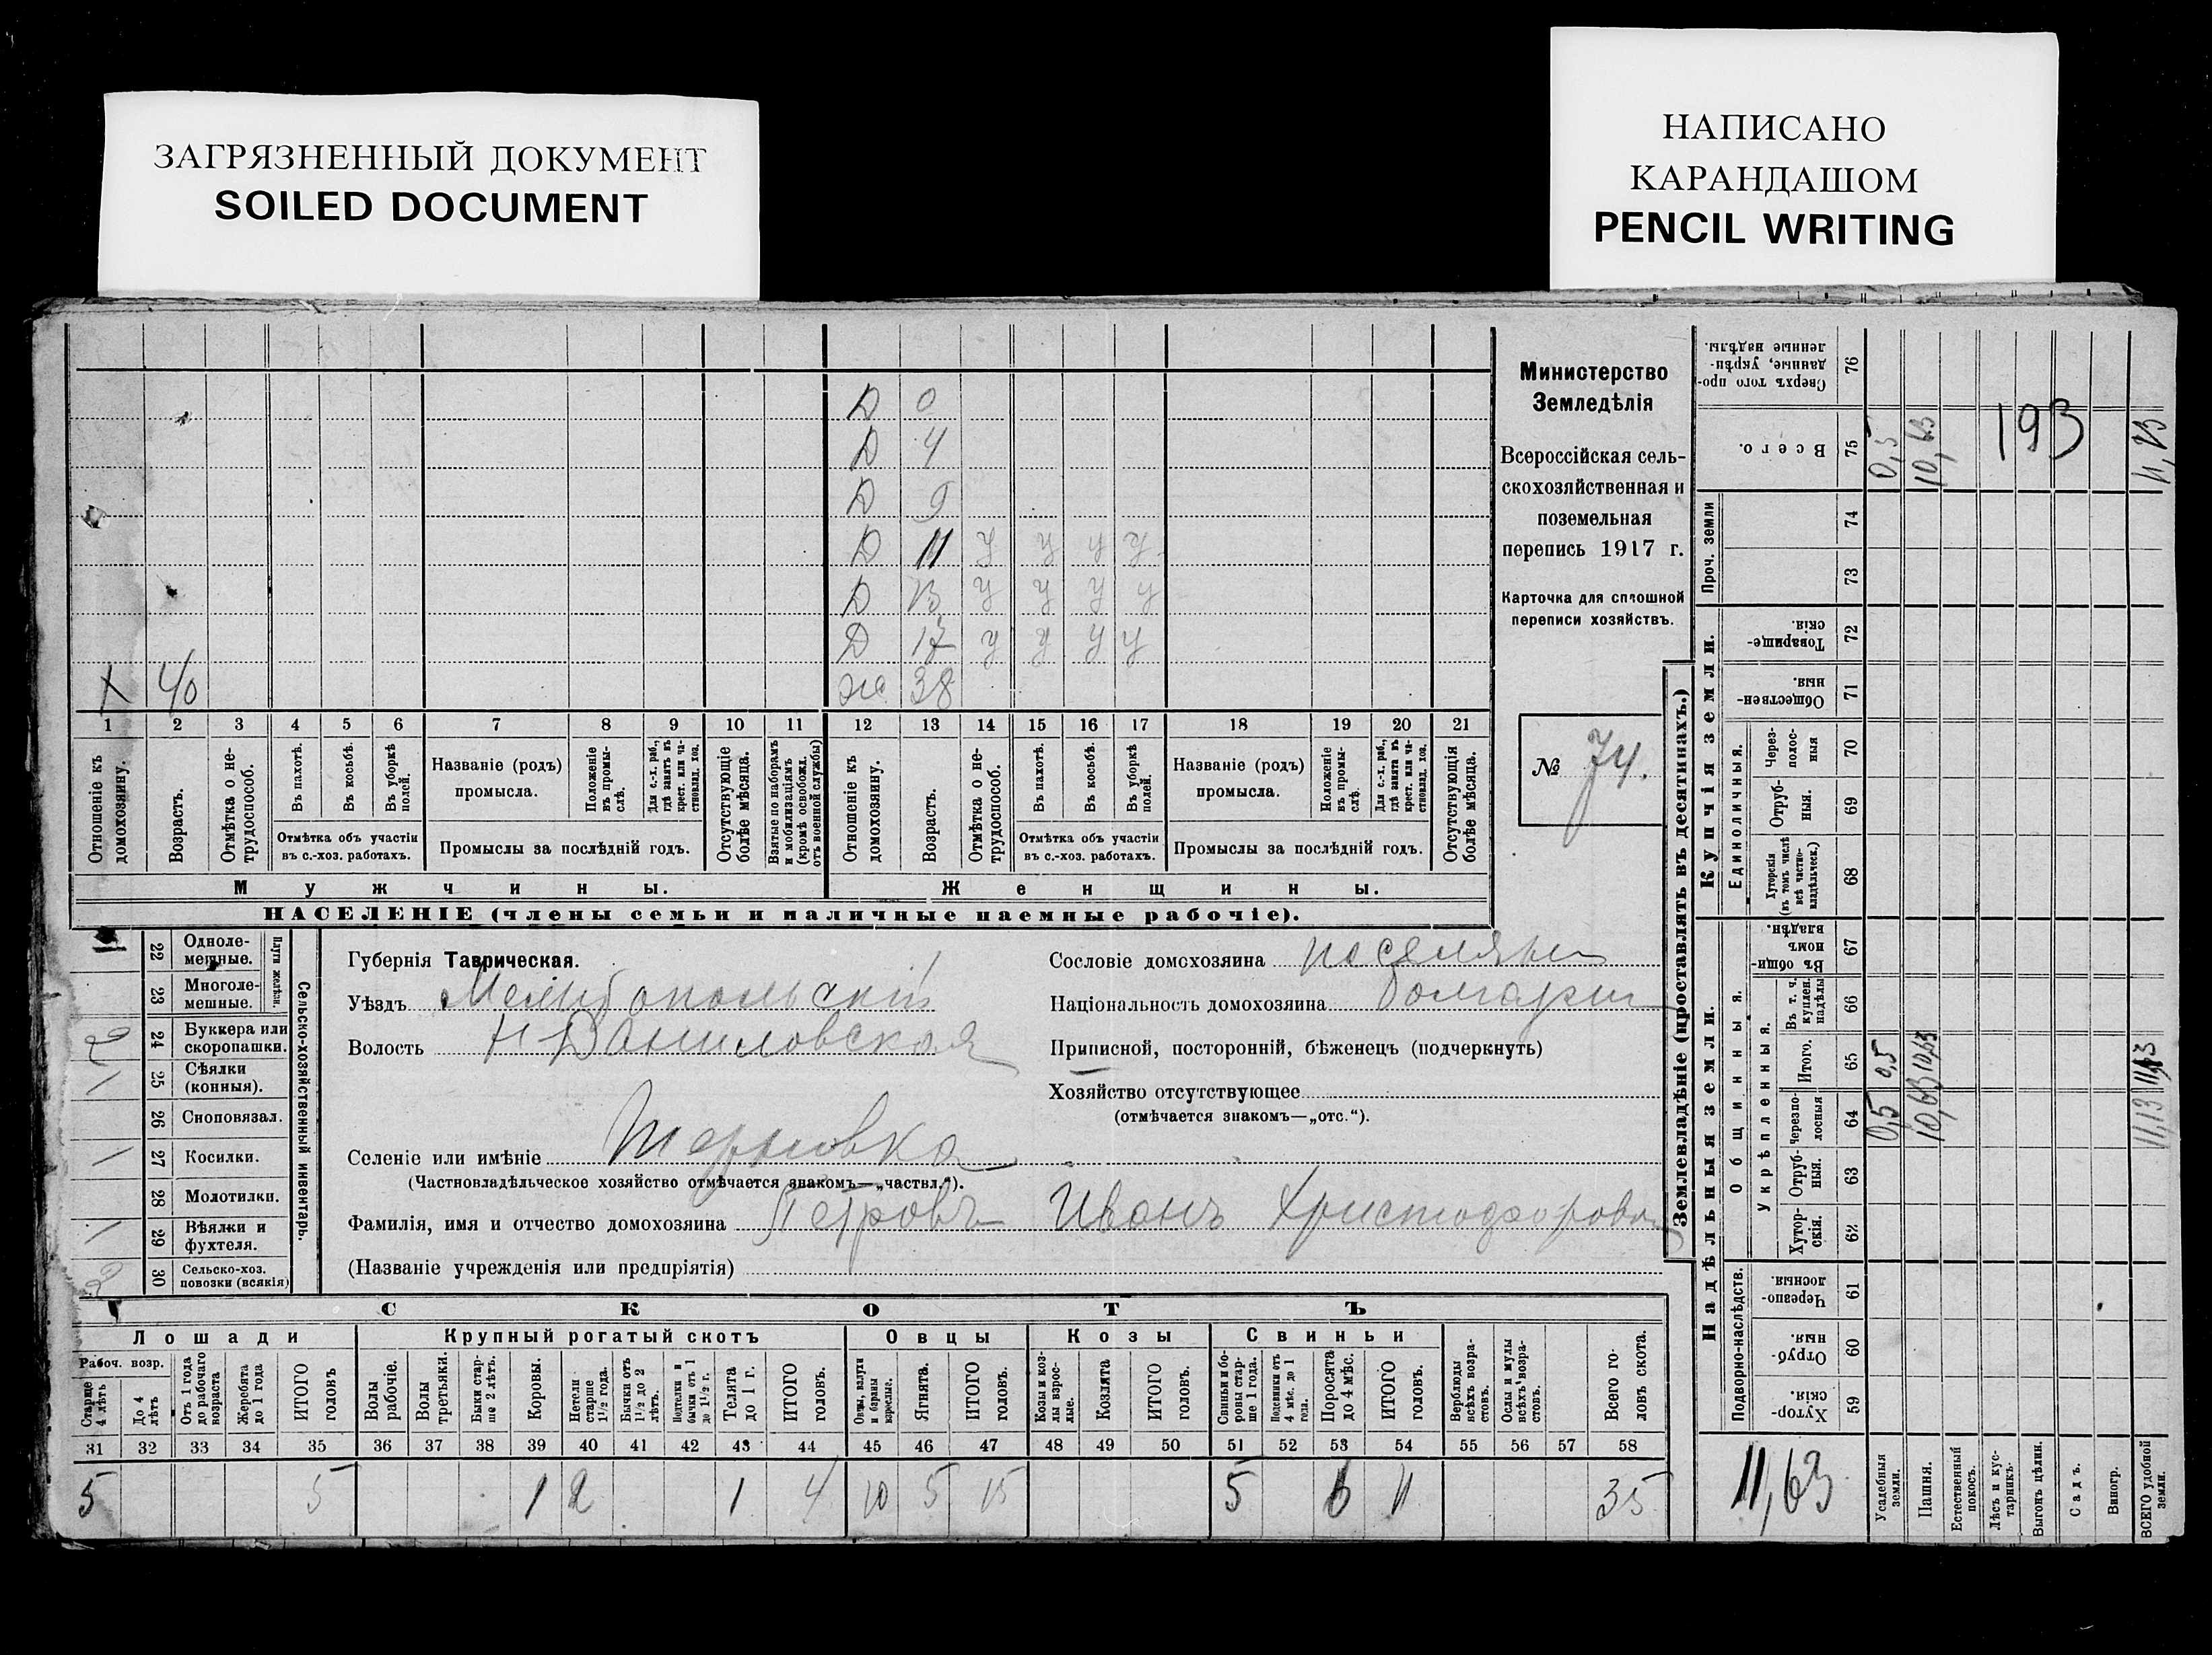 ЗАГРЯЗНЕННЫЙ ДОКУМЕНТ
SOILED DOCUMENT
НАПИСАНО
КАРАНДАШОМ
PENCIL WRITING
Д 0
Д 4
Д 9
Д 11 У У У У
Д 13 У У У У
Д 17 У У У У
Х 40 Ж 38
1 2 3 4 5 6 7 8 9 10 11 12 13 14 15 16 17 18 19 20 21
Отношеніе къ домохозяину.
Возрастъ.
Отмѣтка о не-трудоспособ.
Въ пахотѣ.
Въ косьбѣ.
Въ уборкѣ полей.
Отмѣтка объ участіи
въ с.-хоз. работахъ.
Названіе (родъ)
промысла.
Положеніе въ промы-слѣ.
Для с.-х. раб., гдѣ занятъ въ крест. или ча-стновлад. хоз.
Промыслы за послѣдній годъ.
Отсутствующіе болѣе мѣсяца.
Взятые по наборамъ и мобилизаціямъ (кромѣ освобожд. отъ военной службы)
Отношеніе къ домохозяину.
Возрастъ.
Отмѣтка о не-трудоспособ.
Въ пахотѣ.
Въ косьбѣ.
Въ уборкѣ полей.
Отмѣтка объ участіи
въ с.-хоз. работахъ.
Названіе (родъ)
промысла.
Положеніе въ промы-слѣ.
Для с.-х. раб., гдѣ занята въ крест. или ча-стновлад. хоз.
Промыслы за послѣдній годъ.
Отсутствующія болѣе мѣсяца.
Мужчины. Женщины.
НАСЕЛЕНІЕ (члены семьи и наличные наемные рабочіе).
Министерство
Земледѣлія
Всероссійская сель-
скохозяйственная и
поземельная
перепись 1917 г.
Карточка для сплошной
переписи хозяйствъ.
№ 74.
Сельско-хозяйственный инвентарь.
Плуги желѣзн.
1 22 Одноле-мешные.
23 Многоле-мешные.
2 24 Буккера или скоропашки.
1 25 Сѣялки (конныя).
26 Сноповязал.
1 27 Косилки.
28 Молотилки.
1 29 Вѣялки и фухтеля.
30 Сельско-хоз. повозки (всякія)
Губернія Таврическая.
Уѣздъ Мелитопольскій
Волость Н-Даниловская
Селеніе или имѣніе Терновка
(Частновладѣльческое хозяйство отмѣчается знакомъ—„частвл.“).
Фамилія, имя и отчество домохозяина Петровъ Иванъ Христофоровъ
(Названіе учрежденія или предпріятія)
Сословіе домохозяина поселянин
Національность домохозяина болгарин
Приписной, посторонній, бѣженецъ (подчеркнуть)
Хозяйство отсутствующее
(отмѣчается знакомъ—„отс.“).
СКОТЪ
Лошади Крупный рогатый скотъ Овцы Козы Свиньи
Рабоч. возр.
Старше 4 лѣтъ
До 4 лѣтъ
Отъ 1 года до рабочаго возраста
Жеребята до 1 года
ИТОГО головъ
Волы рабочіе.
Волы третьяки.
Быки стар-ше 2 лѣтъ.
Коровы.
Нетели старше 1½ года.
Бычки отъ 1½ до 2 лѣтъ.
Подтелки и бычки отъ 1 до 1½ г.
Телята до 1 г.
ИТОГО головъ.
Овцы, валухи и бараны взрослые.
Ягнята.
ИТОГО головъ.
Козы и коз-лы взрос-лые.
Козлята
ИТОГО головъ.
Свиньи и бо-ровы стар-ше 1 года.
Подсвинки отъ 4 мѣс. до 1 года.
Поросята до 4 мѣс.
ИТОГО головъ.
Верблюды всѣхъ возра-стовъ.
Ослы и мулы всѣхъ возра-стовъ.
Всего го-ловъ скота.
31 32 33 34 35 36 37 38 39 40 41 42 43 44 45 46 47 48 49 50 51 52 53 54 55 56 57 58
5 5 1 2 1 4 10 5 15 5 6 11 35
Землевладѣніе (проставлять въ десятинахъ.)
Надѣльныя земли. Купчія земли. Проч. земли
Подворно-наслѣдств.
Общинныя.
Укрѣпленныя.
Единоличныя.
Сверхъ того про-данные, укрѣп-ленные надѣлы. 76
Всего. 75 0,5 10,63 193
74
73
Товарище-скія. 72
Обществен-ныя. 71
Через-полос-ныя 70
Отруб-ныя. 69
Хуторскія (въ томъ числѣ всѣ частно-владѣльческ.) 68
Въ общин-номъ владѣн. 67
Въ т. ч. куплен. надѣлы 66
Итого. 65 0,5 10,63
Черезпо-лосныя 64 0,5 10,63 11,13
Отруб-ныя. 63
Хутор-скія. 62
Черезпо-лосныя. 61
Отруб-ныя. 60
Хутор-скія. 59
11,63
Усадебныя земли.
Пашня.
Естественный покосъ.
Лѣсъ и кус-тарникъ.
Выгонъ цѣлин.
Садъ.
Виногр.
ВСЕГО удобной земли.